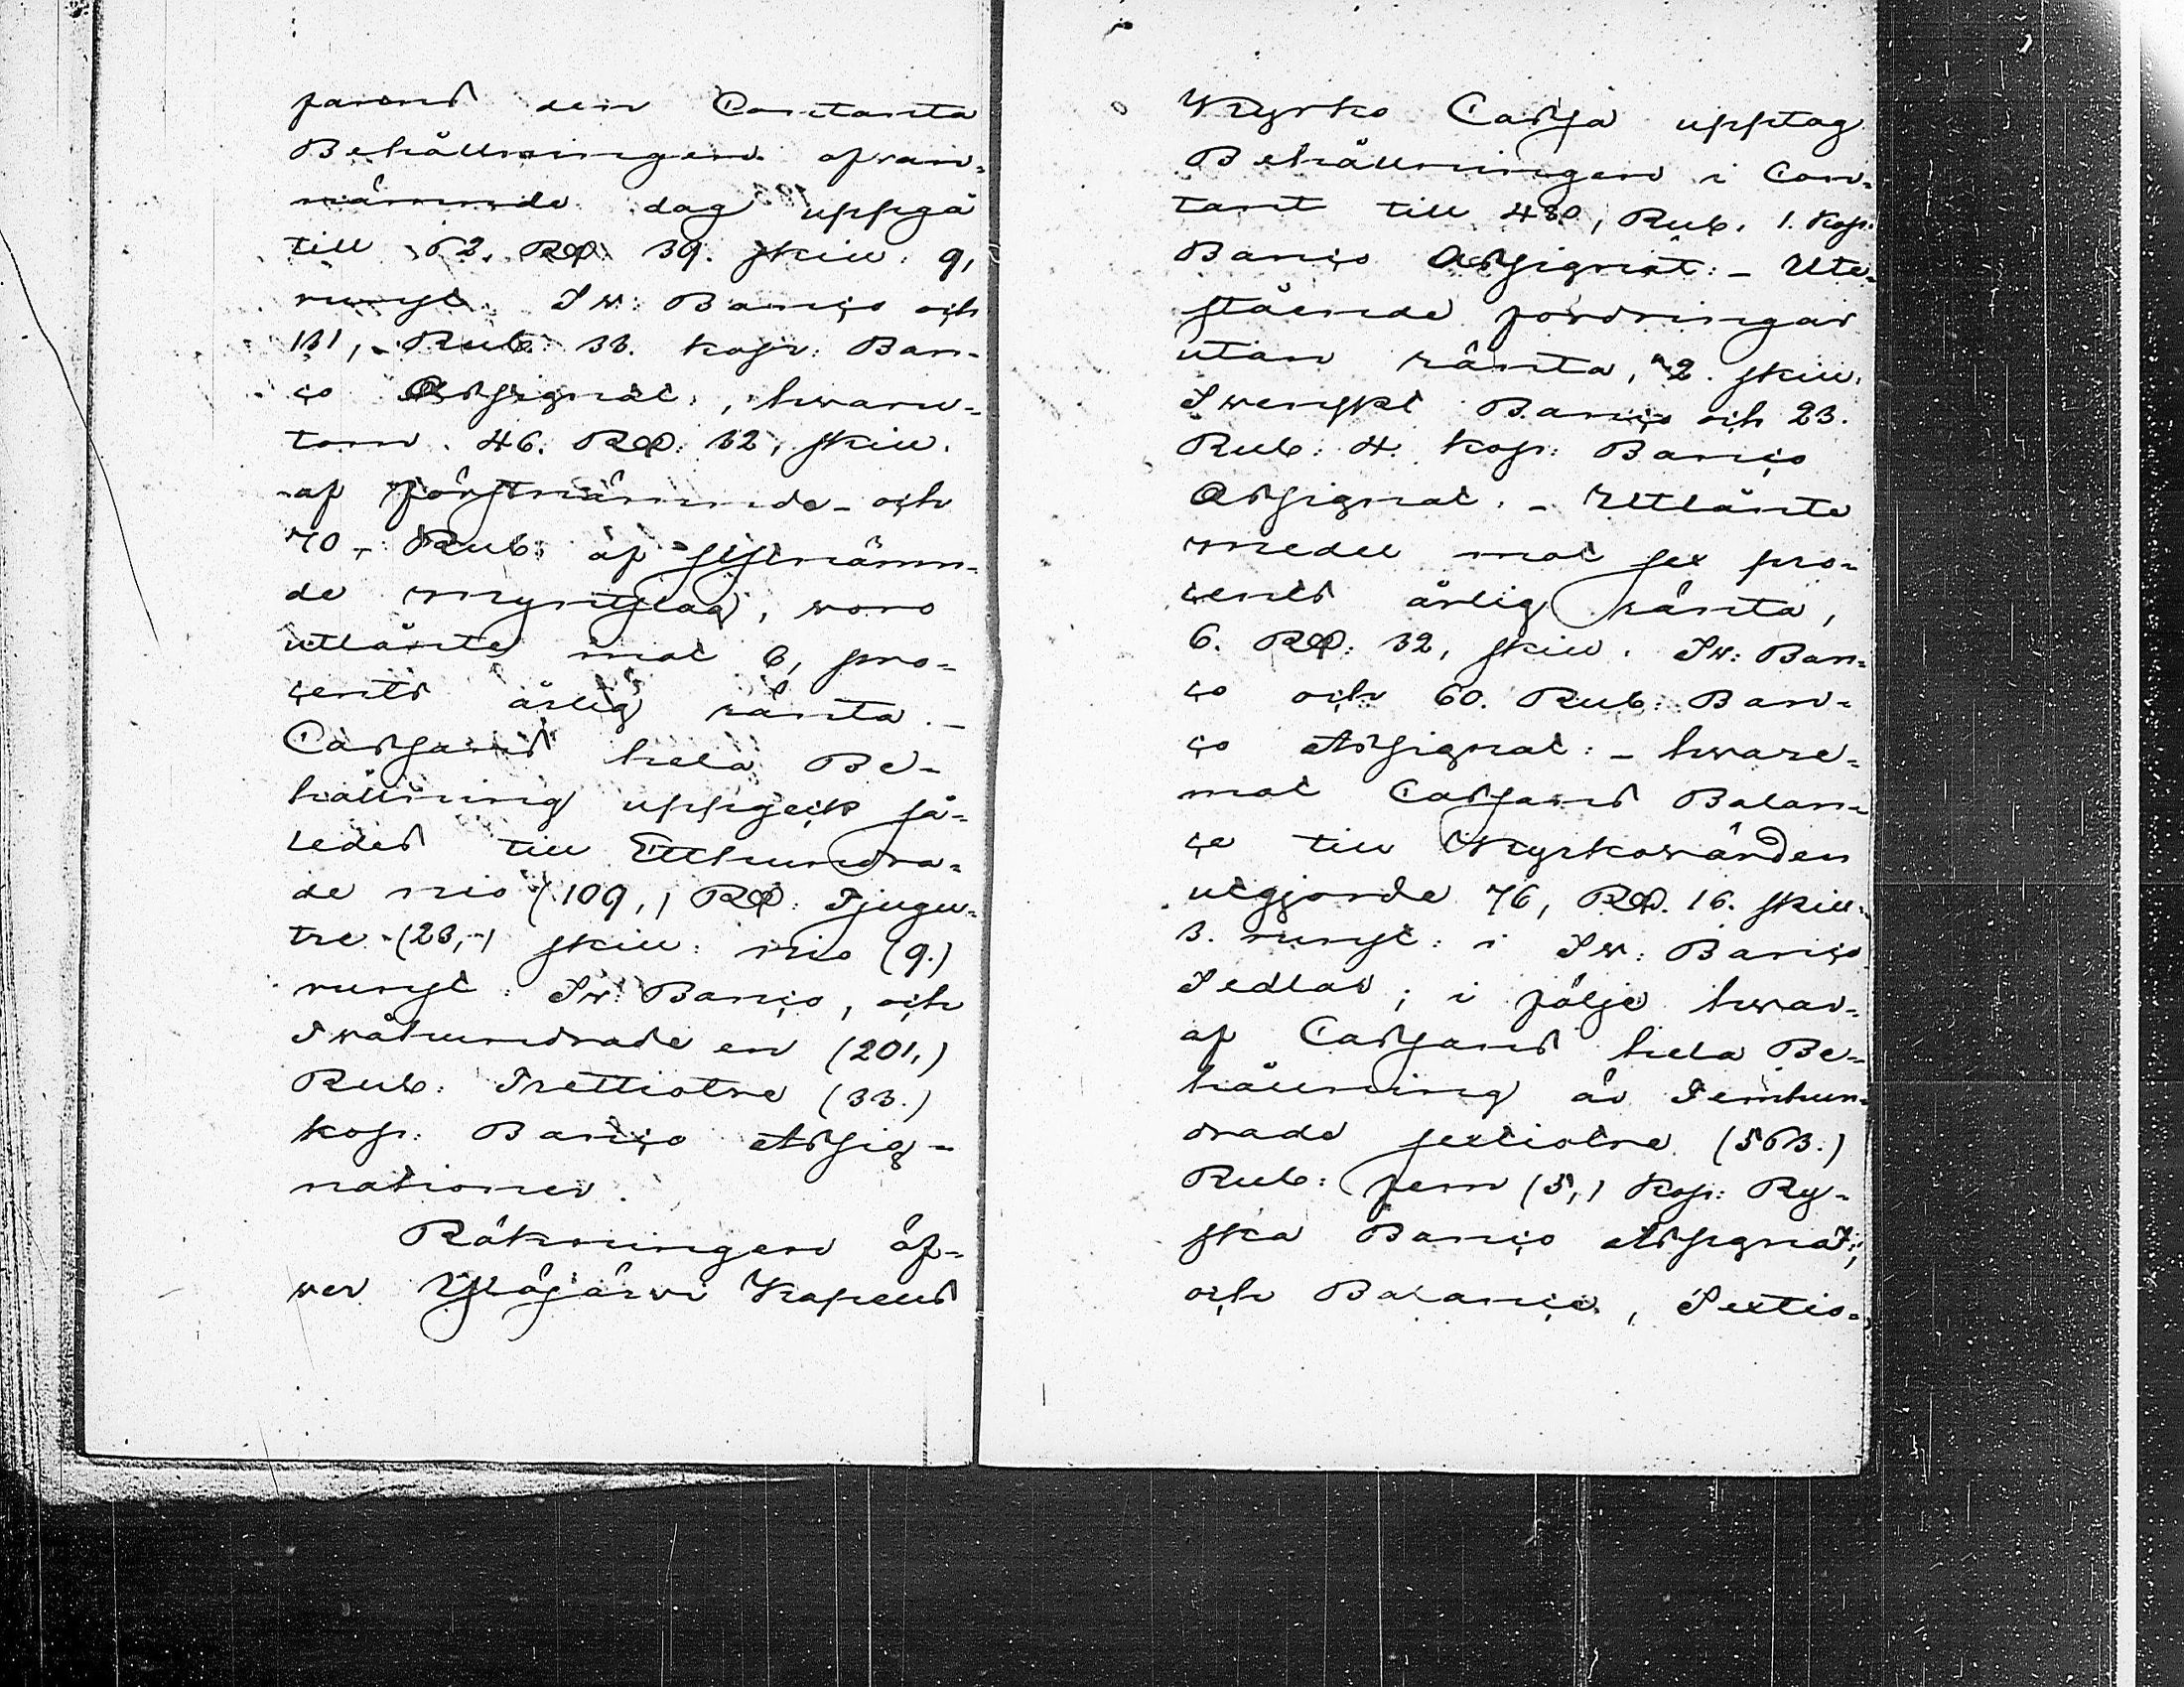 farens den Contanta
Behållningen ofvan-
nämnde dag uppgå
till 62. RD. 39. skill. 9,
runst. Sw: Banco och
131, Rub: 33. kop: Ban-
co Assignat:, hvaru-
tom 46. RD: 32, skill.
af förstnämnde - och
70, Rub: af sistnämn-
de myntslag, woro
utlånte mot 6, pro-
cents årlig ränta. -
Cassans hela Be-
hållning uppgick så-
ledes till Etthundra-
de nio (109,) RD: Tjugu-
tre (23,) skill: nio (9.)
runst. Sw: Banco, och
Twåhundrade en (201,)
Rub: Trettiotre (33.)
kop: Banco Assig-
nationer.
Räkningen öf-
wer Ylöjärwi Kapells
Kyrko Cassa upptog
Behållningen i Con-
tant till 480, Rub. 1. kop.
Banco Assignat: - Ute-
stående fordringar
utan ränta, 2. skill.
Swenskt Banco och 23.
Rub: 4. kop: Banco
Assignat. - Utlånte
medel mot sex pro-
cents årlig ränta,
6. RD: 32, skill. Sw: Ban-
co och 60. Rub: Ban-
co Assignat: - hware-
mot Cassans Balan-
ce till Kyrkowärden
utgjorde 76, RD. 16. skill.
3. runst: i Sw: Banco
Sedlar; i följe hwar-
af Cassans hela Be-
hållning är Femhun-
drade sextiotre (563.)
Rub: fem (5,) kop: Ry-
ska Banco Assignat:,
och Balance, Sextio-